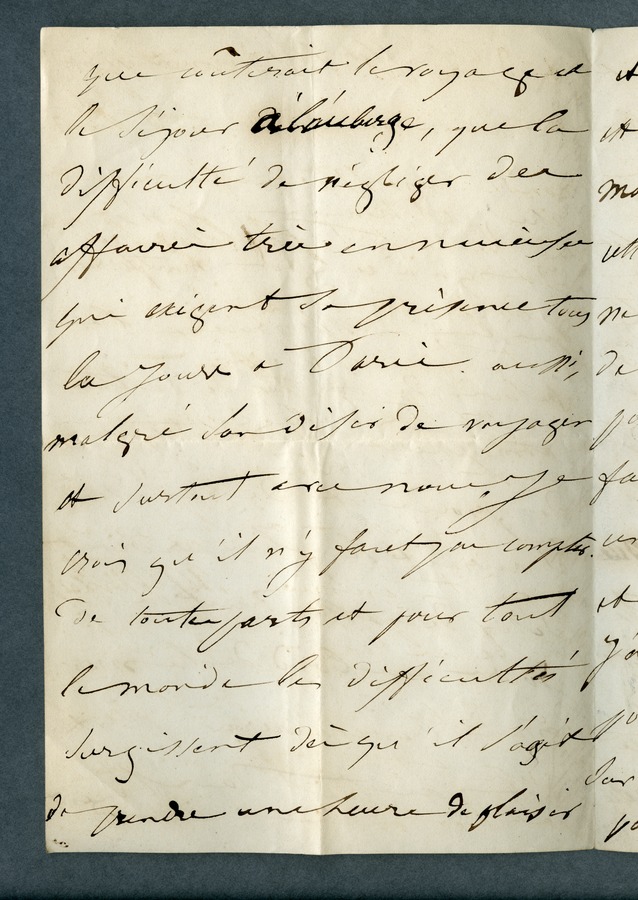 que coûterait le voyage et
le séjour à l'auberge, que la
difficulté de négliger des
affaires très ennuieuses
qui exigent sa présence tous
les jours a Paris. aussi,
malgré son désir de voyager
et surtout avec nous, Je
crois qu'il n'y faut pas compter.
De toutes parts et pour tout
le monde les difficultés
surgissent dès qu'il s'agit
de prendre une heure de plaisir